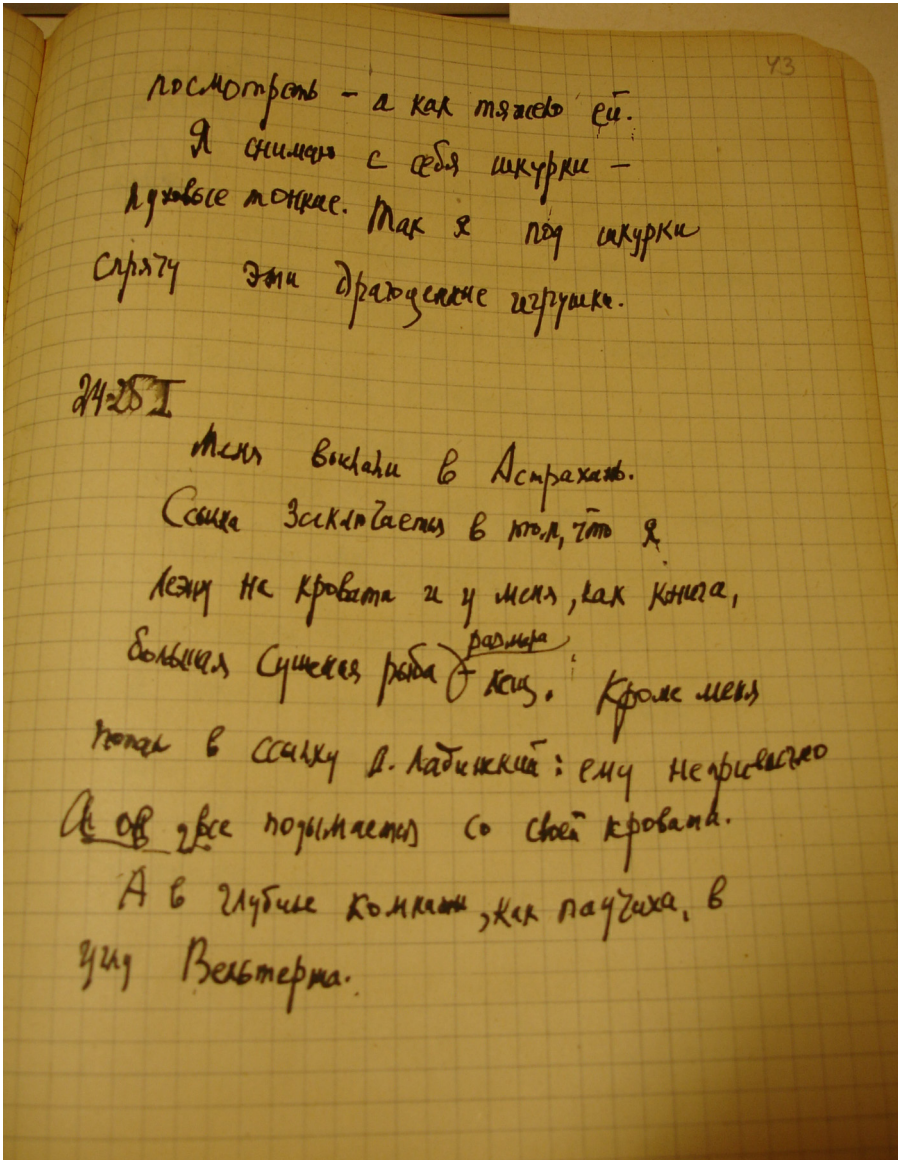 43
посмотреть – а как тяжело ей.
Я снимаю с себя шкурки –
пуховые тонкие. Так я под шкурки
спрячу эти драгоценные игрушки.
24-25 I
Меня выслали в Астрахань.
Ссылка заключается в том, что я
лежу на кровати и у меня, как книга,
размера
большая сушеная рыба – лещ. Кроме меня
попал в ссылку А. Лабинский: ему неприлично
А он все подымается со своей кровати.
А в глубине комнаты, как паучиха, в
углу Вельтерша.